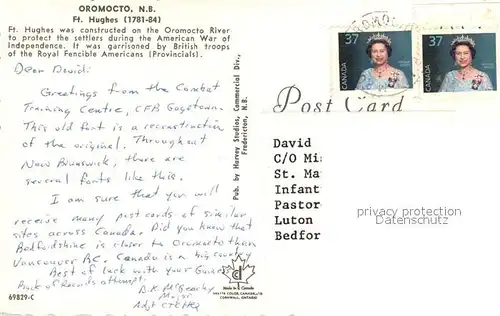 OROMOCTO, N.B.
Ft. Hughes (1781-84)
Ft. Hughes was constructed on the Oromocto River
to protect the settlers during the American War of
Independence. It was garrisoned by British troops
of the Royal Fencible Americans (Provincials).
Dear David:
Greetings from the Combat
Training Centre, CFB Gagetown.
This old fort is a reconstruction
of the original. Throughout
New Brunswick, there are
several forts like this.
I am sure that you will
receive many post cards of similar
sites across Canada. Did you know that
Bedfordshire is closer to Oromocto than
Vancouver BC. Canada is a big country
Best of luck with your Guiness
Book of Records attempt.
Major
69829-C
Pub. by Harvey Studios, Commercial Div.,
Fredericton, N.B.
Made in Canada
CORNWALL, ONTARIO
37
CANADA
37
CANADA
Post Card
David
C/O Mi
St. Ma
Infant
Pastor
Luton
Bedfor
privacy protection
Datenschutz